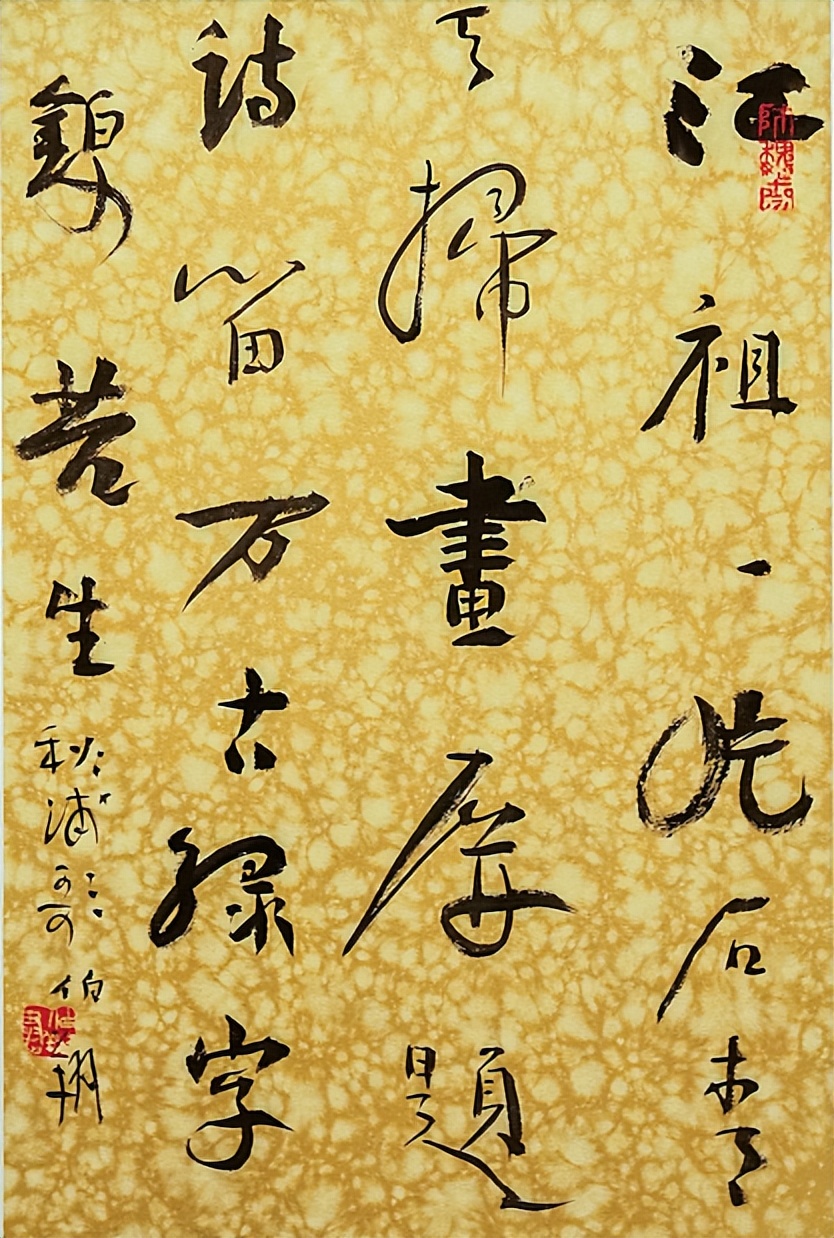 江祖一片石青
天掃畫屏題
詩留万古綠字
錦苔生
秋浦歌 伯